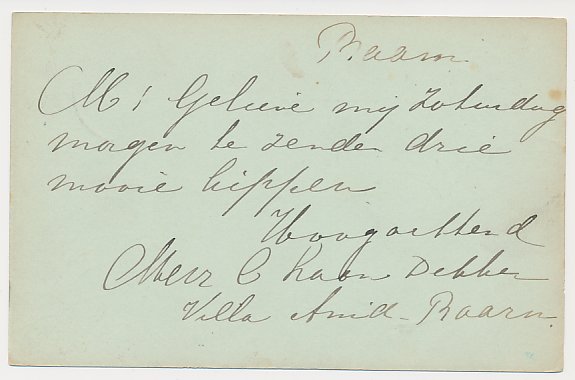 Baarn
M! Gelieve mij Zaturdag
morgen te zenden drie
mooie kippen
Hoogachtend
Mevr C Laan Dekker
Villa Anid - Baarn.